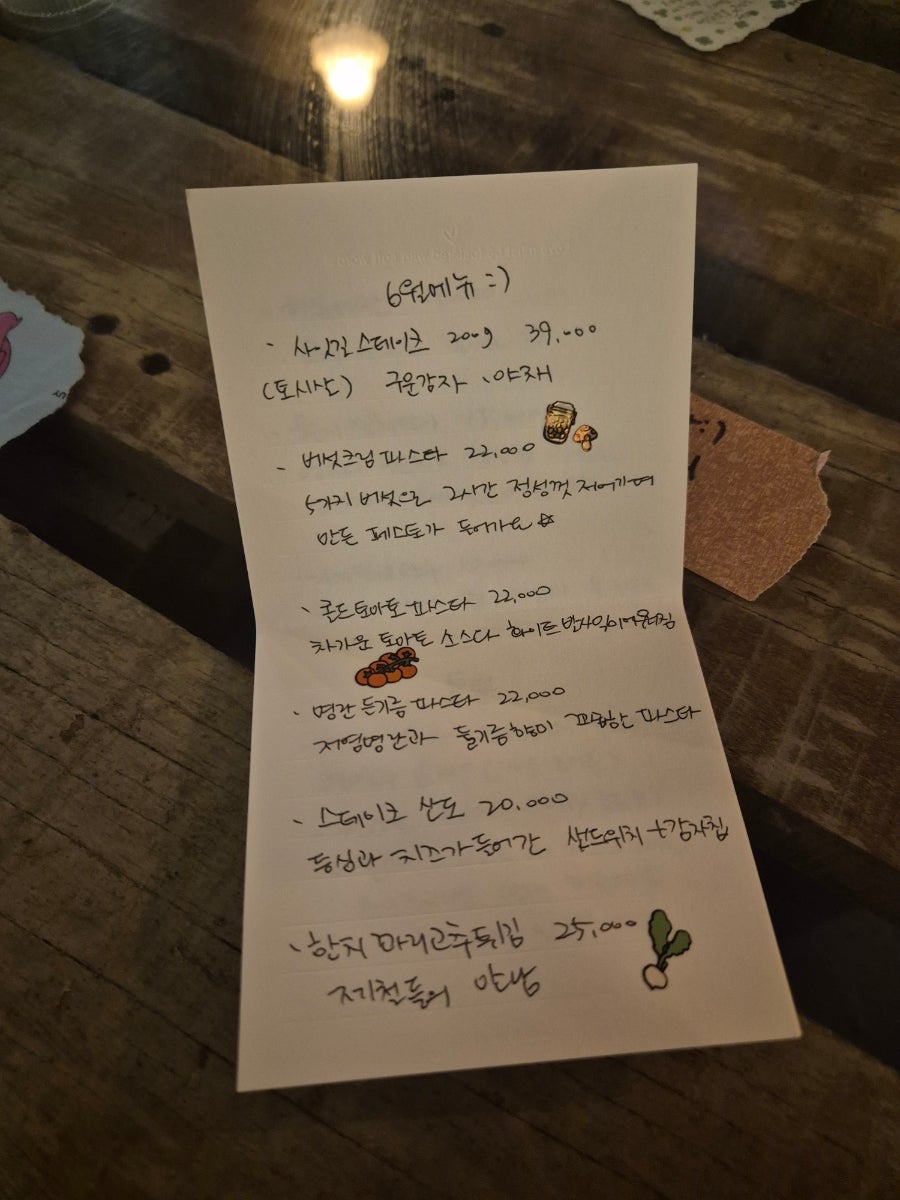 6월메뉴 :)
· 사잇길 스테이크 200g 39,000
(토시살) 구운감자, 야채
· 버섯크림 파스타 22,000
5가지 버섯으로 2시간 정성껏 저어가며
만든 페스토가 들어가요☆
· 콜드토마토 파스타 22,000
차가운 토마토 소스다 화이트 이
· 명란 들기름 파스타 22,000
저염명란과 들기름향이 파스타
· 스테이크 산도 20,000
등심과 치즈가 들어간 샌드위치 +감자칩
· 한치 마리고추튀김 25,000
제철들의 만남